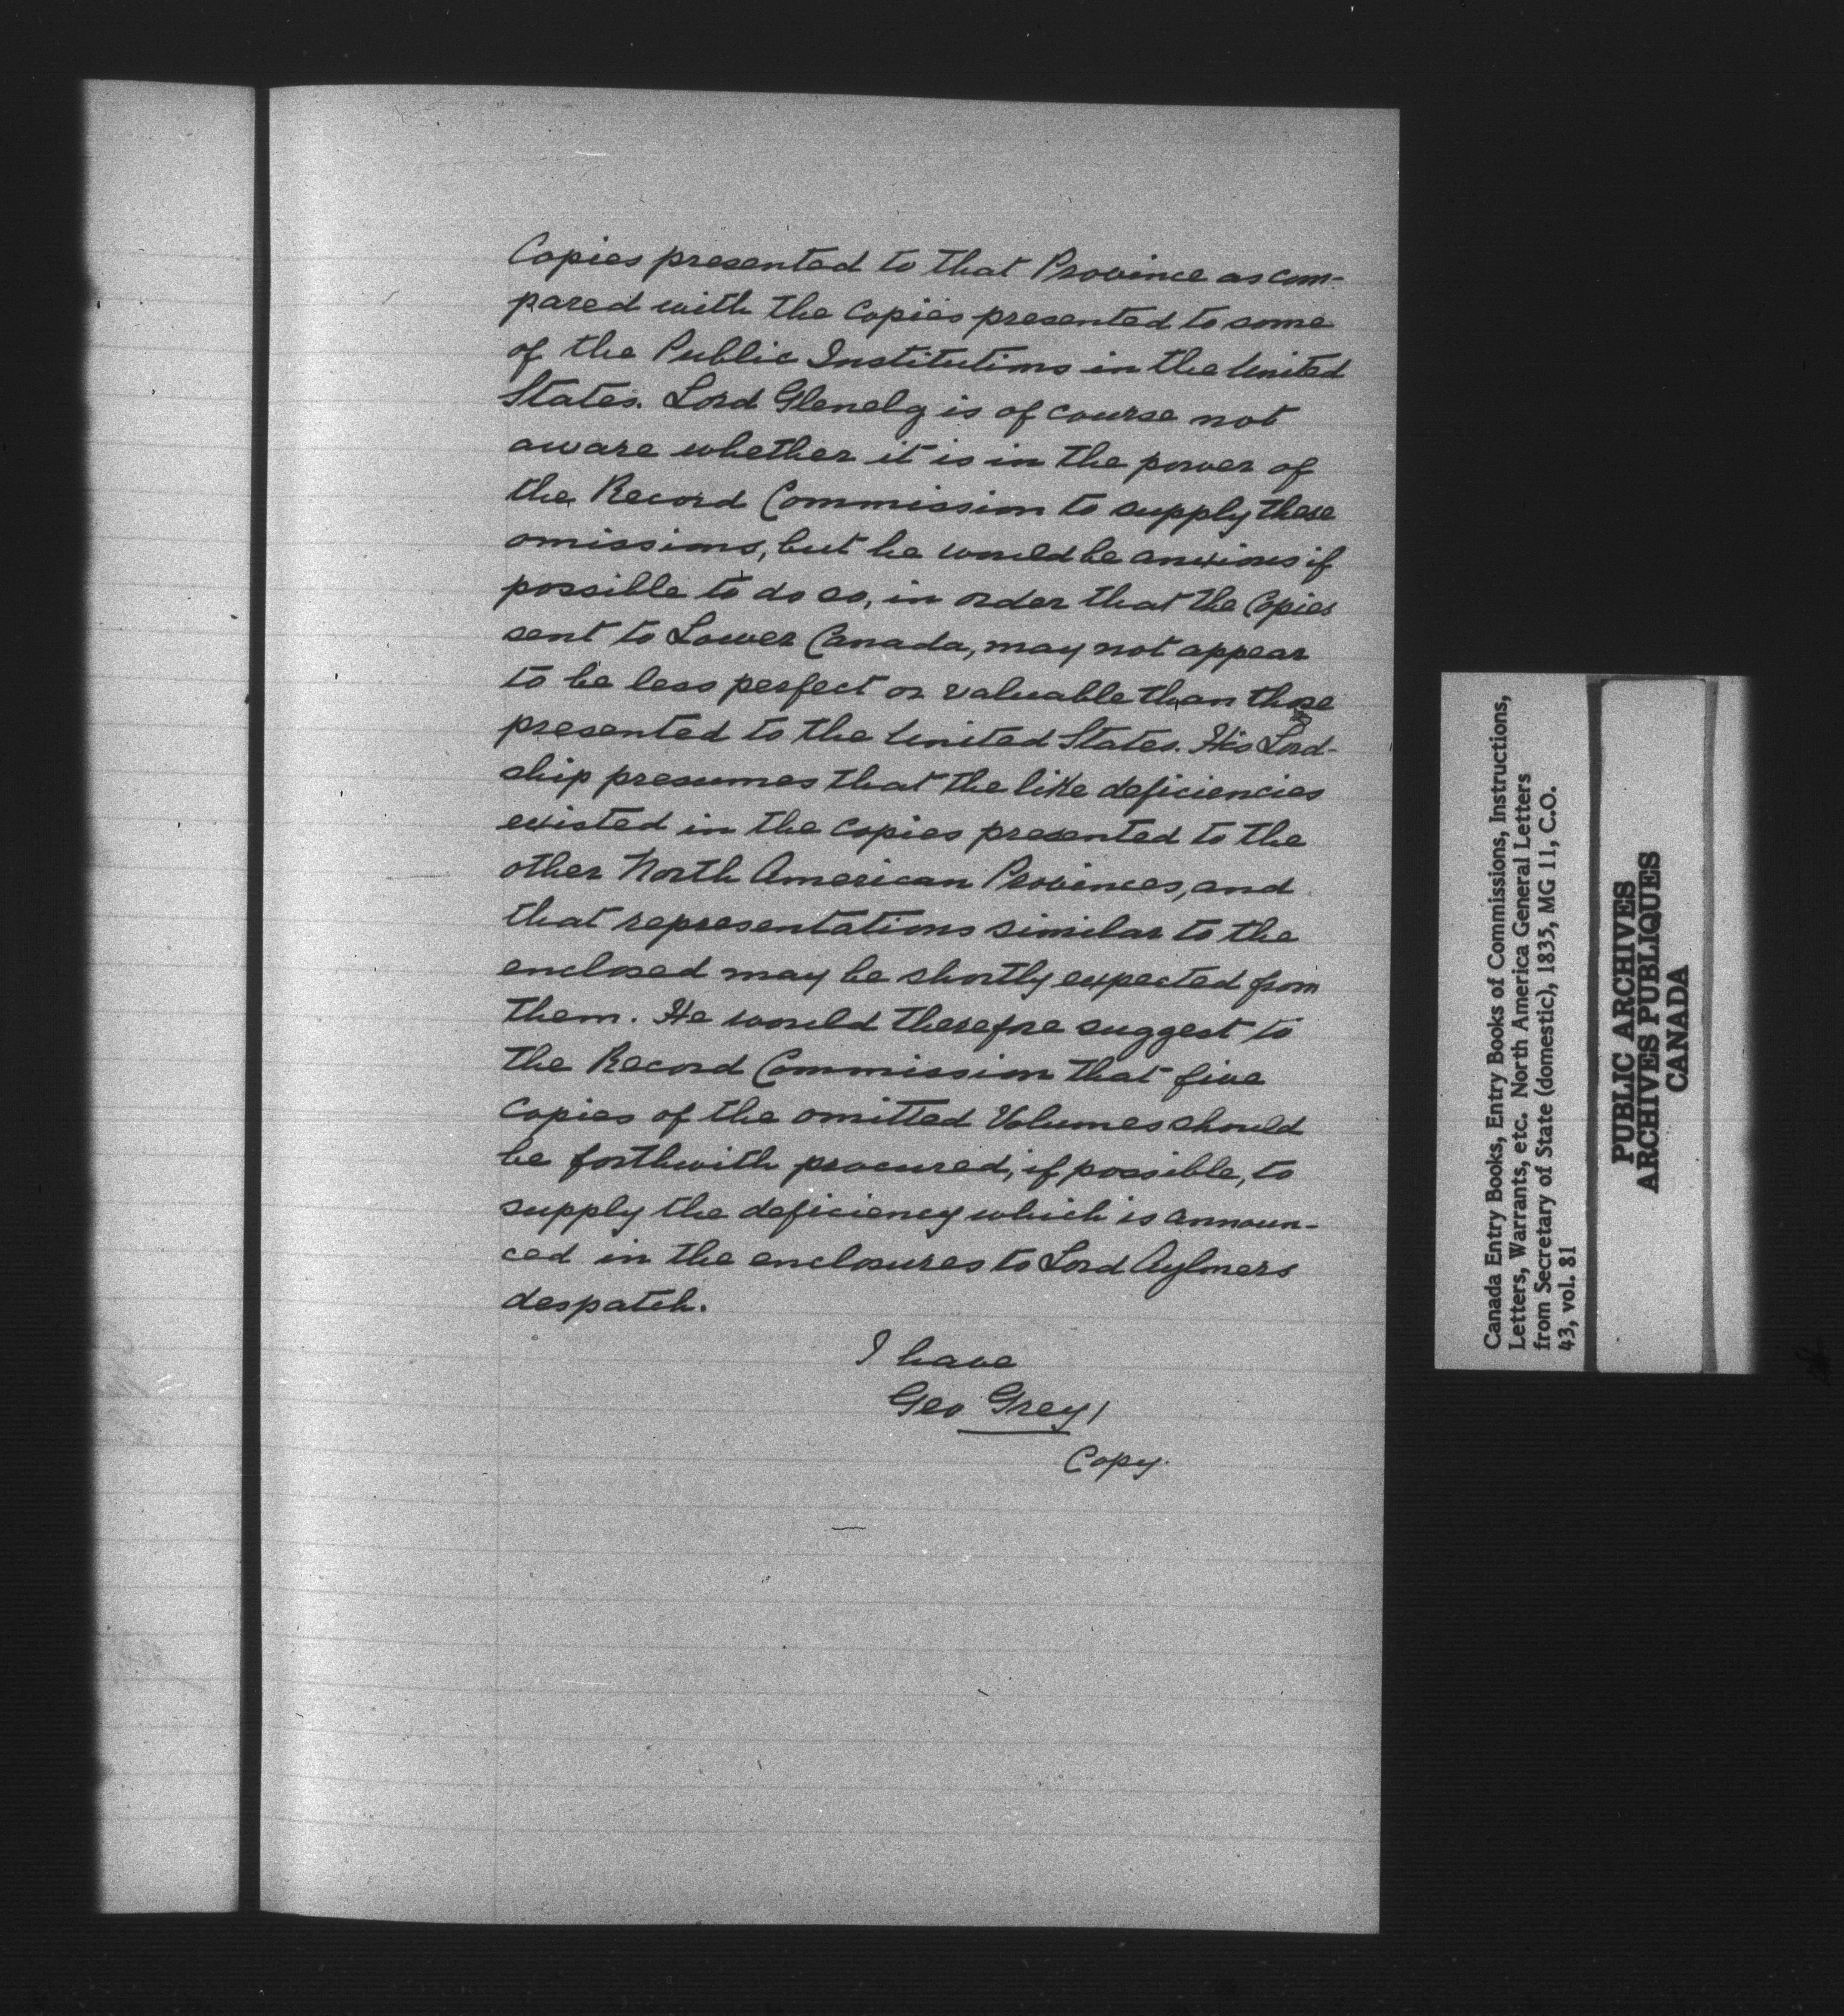 Copies presented to that Province as com-
pared with the Copies presented to some
of the Public Institutions in the United
States. Lord Glenelg is of course not
aware whether it is in the power of
the Record Commission to supply these
omissions, but he would be anxious if
possible to do so, in order that the Copies
sent to Lower Canada, may not appear
to be less perfect or valuable than those
presented to the United States. His Lord-
ship presumes that the like deficiencies
existed in the copies presented to the
other North American Provinces, and
that representations similar to the
enclosed may be shortly expected from
them. He would therefore suggest to
the Record Commission that five
copies of the omitted Volumes should
be forthwith procured, if possible, to
supply the deficiency which is announ-
ced in the enclosures to Lord Aylmers
despatch.
I have
Geo Grey/
Copy.
Canada Entry Books, Entry Books of Commissions, Instructions,
Letters, Warrants, etc. North America General Letters
from Secretary of State (domestic), 1835, MG 11, C.O.
43, vol. 81
PUBLIC ARCHIVES
ARCHIVES PUBLIQUES
CANADA